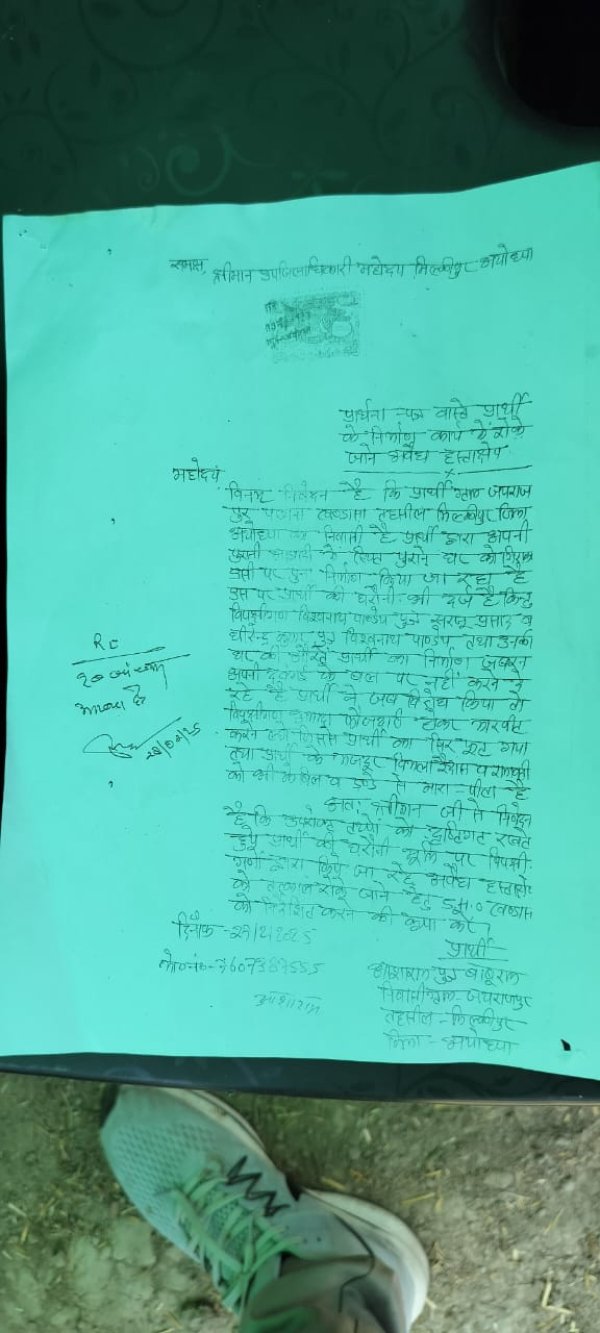 समक्ष, श्रीमान उपजिलाधिकारी महोदय मिल्कीपुर अयोध्या
प्रार्थना-पत्र वास्ते प्रार्थी
के निर्माण कार्य में रोके
जाने अवैध हस्ताक्षेप
महोदय,
विनम्र निवेदन है कि प्रार्थी ग्राम जयराज
पुर खण्डासा तहसील मिल्कीपुर जिला
अयोध्या का निवासी है प्रार्थी द्वारा अपनी
पुरानी आबादी में स्थित पुराने घर को गिराकर
उसी पर पुनः निर्माण किया जा रहा है
उस पर प्रार्थी की घरौनी भी दर्ज है किन्तु
विपक्षीगण विश्वनाथ पाण्डेय पुत्र सूरज प्रसाद व
धीरेन्द्र कुमार पुत्र विश्वनाथ पाण्डेय तथा उनके
घर की औरतें प्रार्थी का निर्माण जबरन
अपनी दबंगई के बल पर नहीं करने दे
रहे है प्रार्थी ने जब विरोध किया तो
विपक्षीगण फौजदारी मारपीट
करने लगे जिससे प्रार्थी का सिर फूट गया
तथा प्रार्थी के मजदूर व
को भी व डण्डे से मारा-पीटा है
अतः श्रीमान जी से निवेदन
है कि उपरोक्त तथ्यों को दृष्टिगत रखते
हुये प्रार्थी की घरौनी भूमि पर विपक्षी
गणों द्वारा किये जा रहे अवैध हस्ताक्षेप
को तत्काल रोके जाने हेतु S.H.O खण्डासा
को निर्देशित करने की कृपा करें।
प्रार्थी
दिनाँक-
मो०नं०-7607387555
आशाराम पुत्र बाबूराम
आशाराम
निवासी ग्राम-जयराजपुर
तहसील-मिल्कीपुर
जिला-अयोध्या